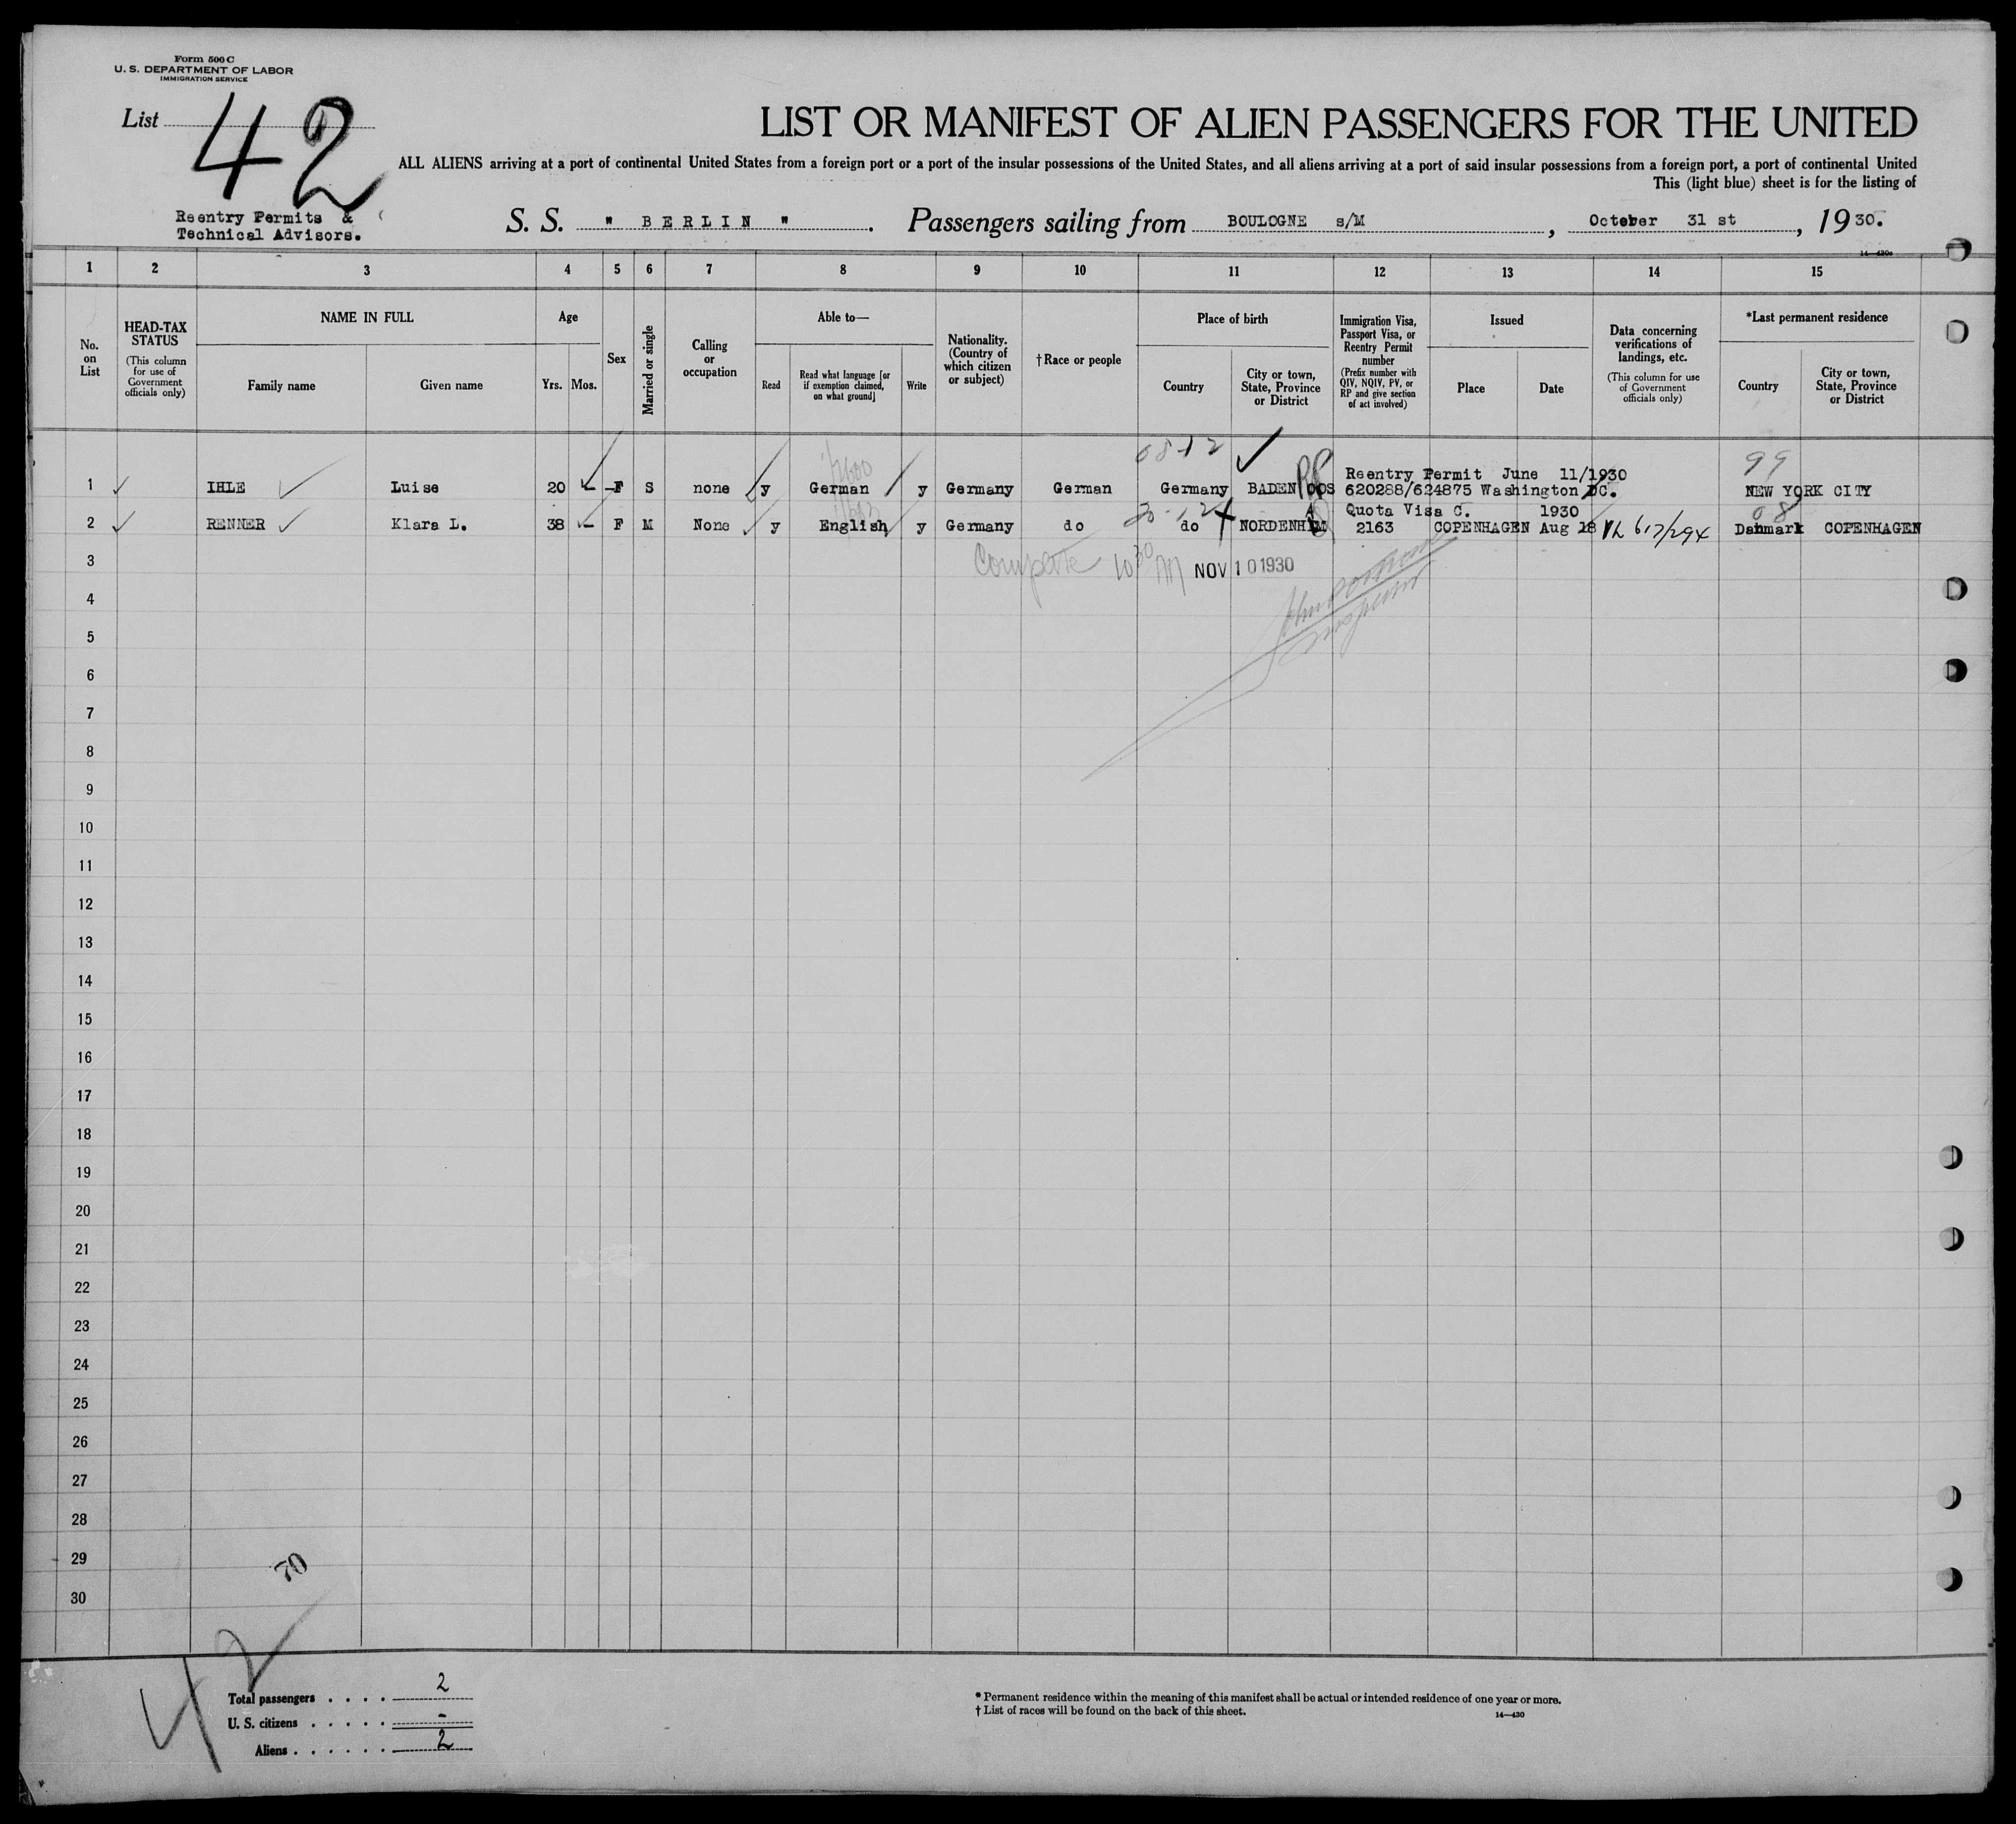 Form 500 C
U. S. DEPARTMENT OF LABOR
IMMIGRATION SERVICE
List 42
LIST OR MANIFEST OF ALIEN PASSENGERS FOR THE UNITED
ALL ALIENS arriving at a port of continental United States from a foreign port or a port of the insular possessions of the United States, and all aliens arriving at a port of said insular possessions from a foreign port, a port of continental United
This (light blue) sheet is for the listing of
Reentry Permits &
Technical Advisors.
S. S. " BERLIN ". Passengers sailing from BOULOGNE s/M, October 31 st, 1930.
14—430c
1 2 3 4 5 6 7 8 9 10 11 12 13 14 15
No. on List
HEAD-TAX STATUS
(This column for use of Government officials only)
NAME IN FULL
Family name
Given name
Age
Yrs. Mos.
Sex
Married or single
Calling or occupation
Able to—
Read
Read what language [or if exemption claimed, on what ground]
Write
Nationality. (Country of which citizen or subject)
†Race or people
Place of birth
Country
City or town, State, Province or District
Immigration Visa, Passport Visa, or Reentry Permit number
(Prefix number with QIV, NQIV, PV, or RP and give section of act involved)
Issued
Place
Date
Data concerning verifications of landings, etc.
(This column for use of Government officials only)
*Last permanent residence
Country
City or town, State, Province or District
99
Reentry Permit June 11/1930
1 IHLE Luise 20 – F S none y German y Germany German Germany BADEN OOS 620288/624875 Washington DC. NEW YORK CITY
Quota Visa C. 1930
2 RENNER Klara L. 38 – F M None y English y Germany do do NORDENHAM 2163 COPENHAGEN Aug 18 Danmark COPENHAGEN
3 Complete 10 30 NOV 10 1930
4
5
6
7
8
9
10
11
12
13
14
15
16
17
18
19
20
21
22
23
24
25
26
27
28
29
30
70
42
Total passengers . . . . 2
U. S. citizens . . . . . -
Aliens . . . . . . 2
* Permanent residence within the meaning of this manifest shall be actual or intended residence of one year or more.
† List of races will be found on the back of this sheet.
14—430